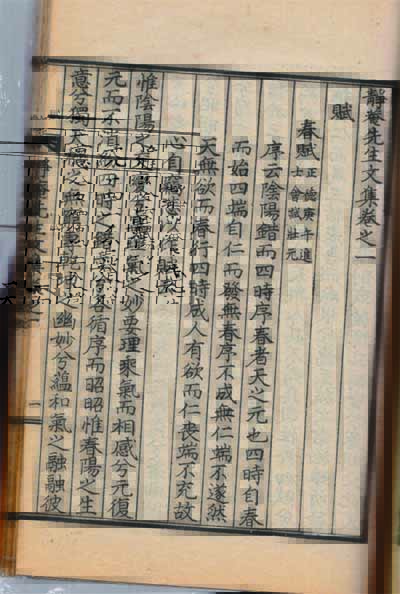 靜菴先生文集卷之一
賦
春賦 正德庚午進士會試壯元
序云陰陽錯而四時序春者天之元也四時自春
而始四端自仁而發無春序不成無仁端不遂然
天無欲而春行四時成人有欲而仁喪端不充故
心自以作賦
惟陰陽之氣之妙要理乘氣而相感兮元復
元而不四時之錯兮各循序而昭昭惟春陽之生
意兮獨天德之無幽妙兮蘊和氣之融融彼